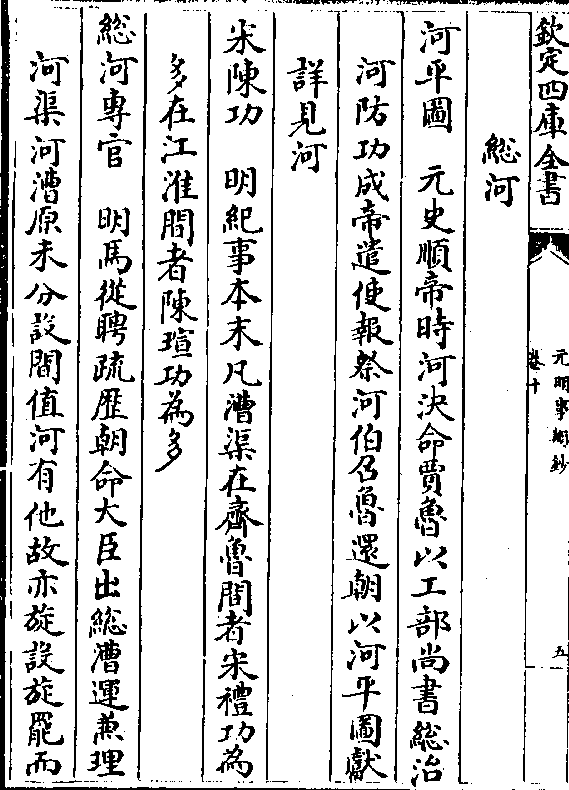 欽定四庫全書
元明事類鈔
卷十
五
總河
河平圖 元史順帝時河決命賈魯以工部尚書總治
河防功成帝遣使報祭河伯召魯還朝以河平圖獻
詳見河
宋陳功 明紀事本末凡漕渠在齊魯間者宋禮功為
多在江淮間者陳瑄功為多
總河專官 明馬從聘疏歴朝命大臣出總漕運兼理
河渠河漕原未分設間值河有他故亦旋設旋罷而